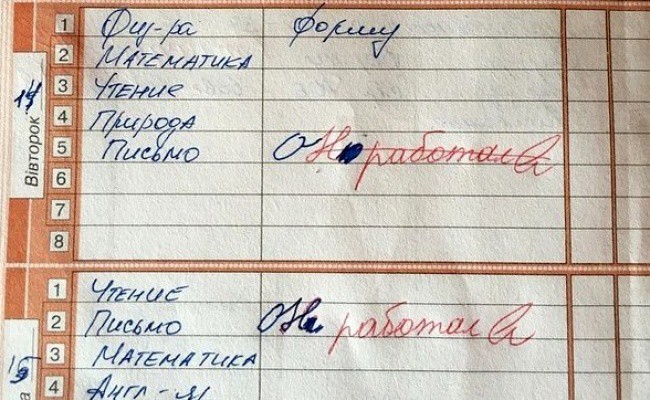 14
Вівторок
1 Физ-ра Форму
2 Математика
3 Чтение
4 Природа
5 Письмо ОН работал
6
7
8
15
1 Чтение
2 Письмо ОН работал
3 Математика
4